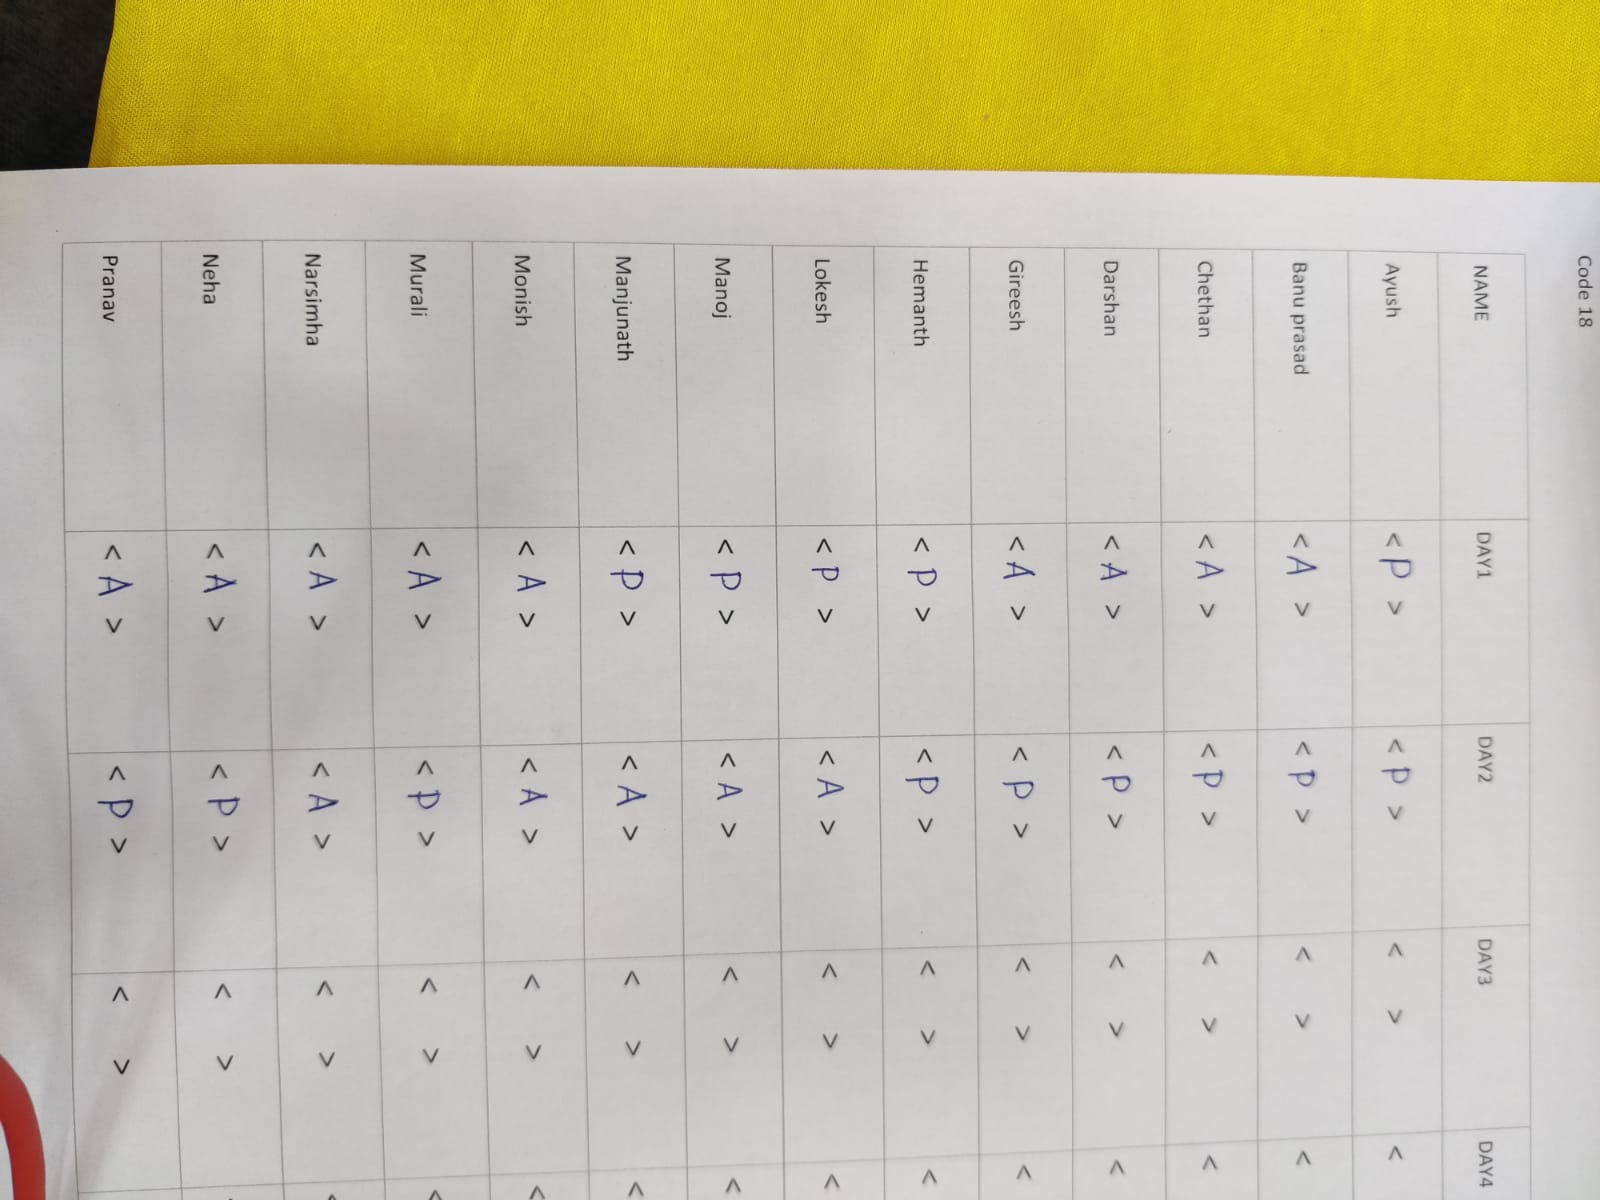 Code 18
NAME DAY1 DAY2 DAY3 DAY4
Ayush < P > < P > < > <
Banu prasad < A > < P > < > <
Chethan < A > < P > < > <
Darshan < A > < P > < > <
Gireesh < A > < P > < > <
Hemanth < P > < P > < > <
Lokesh < P > < A > < > <
Manoj < P > < A > < > <
Manjunath < P > < A > < > <
Monish < A > < A > < > <
Murali < A > < P > < > <
Narsimha < A > < A > < > <
Neha < A > < P > < >
Pranav < A > < P > < >